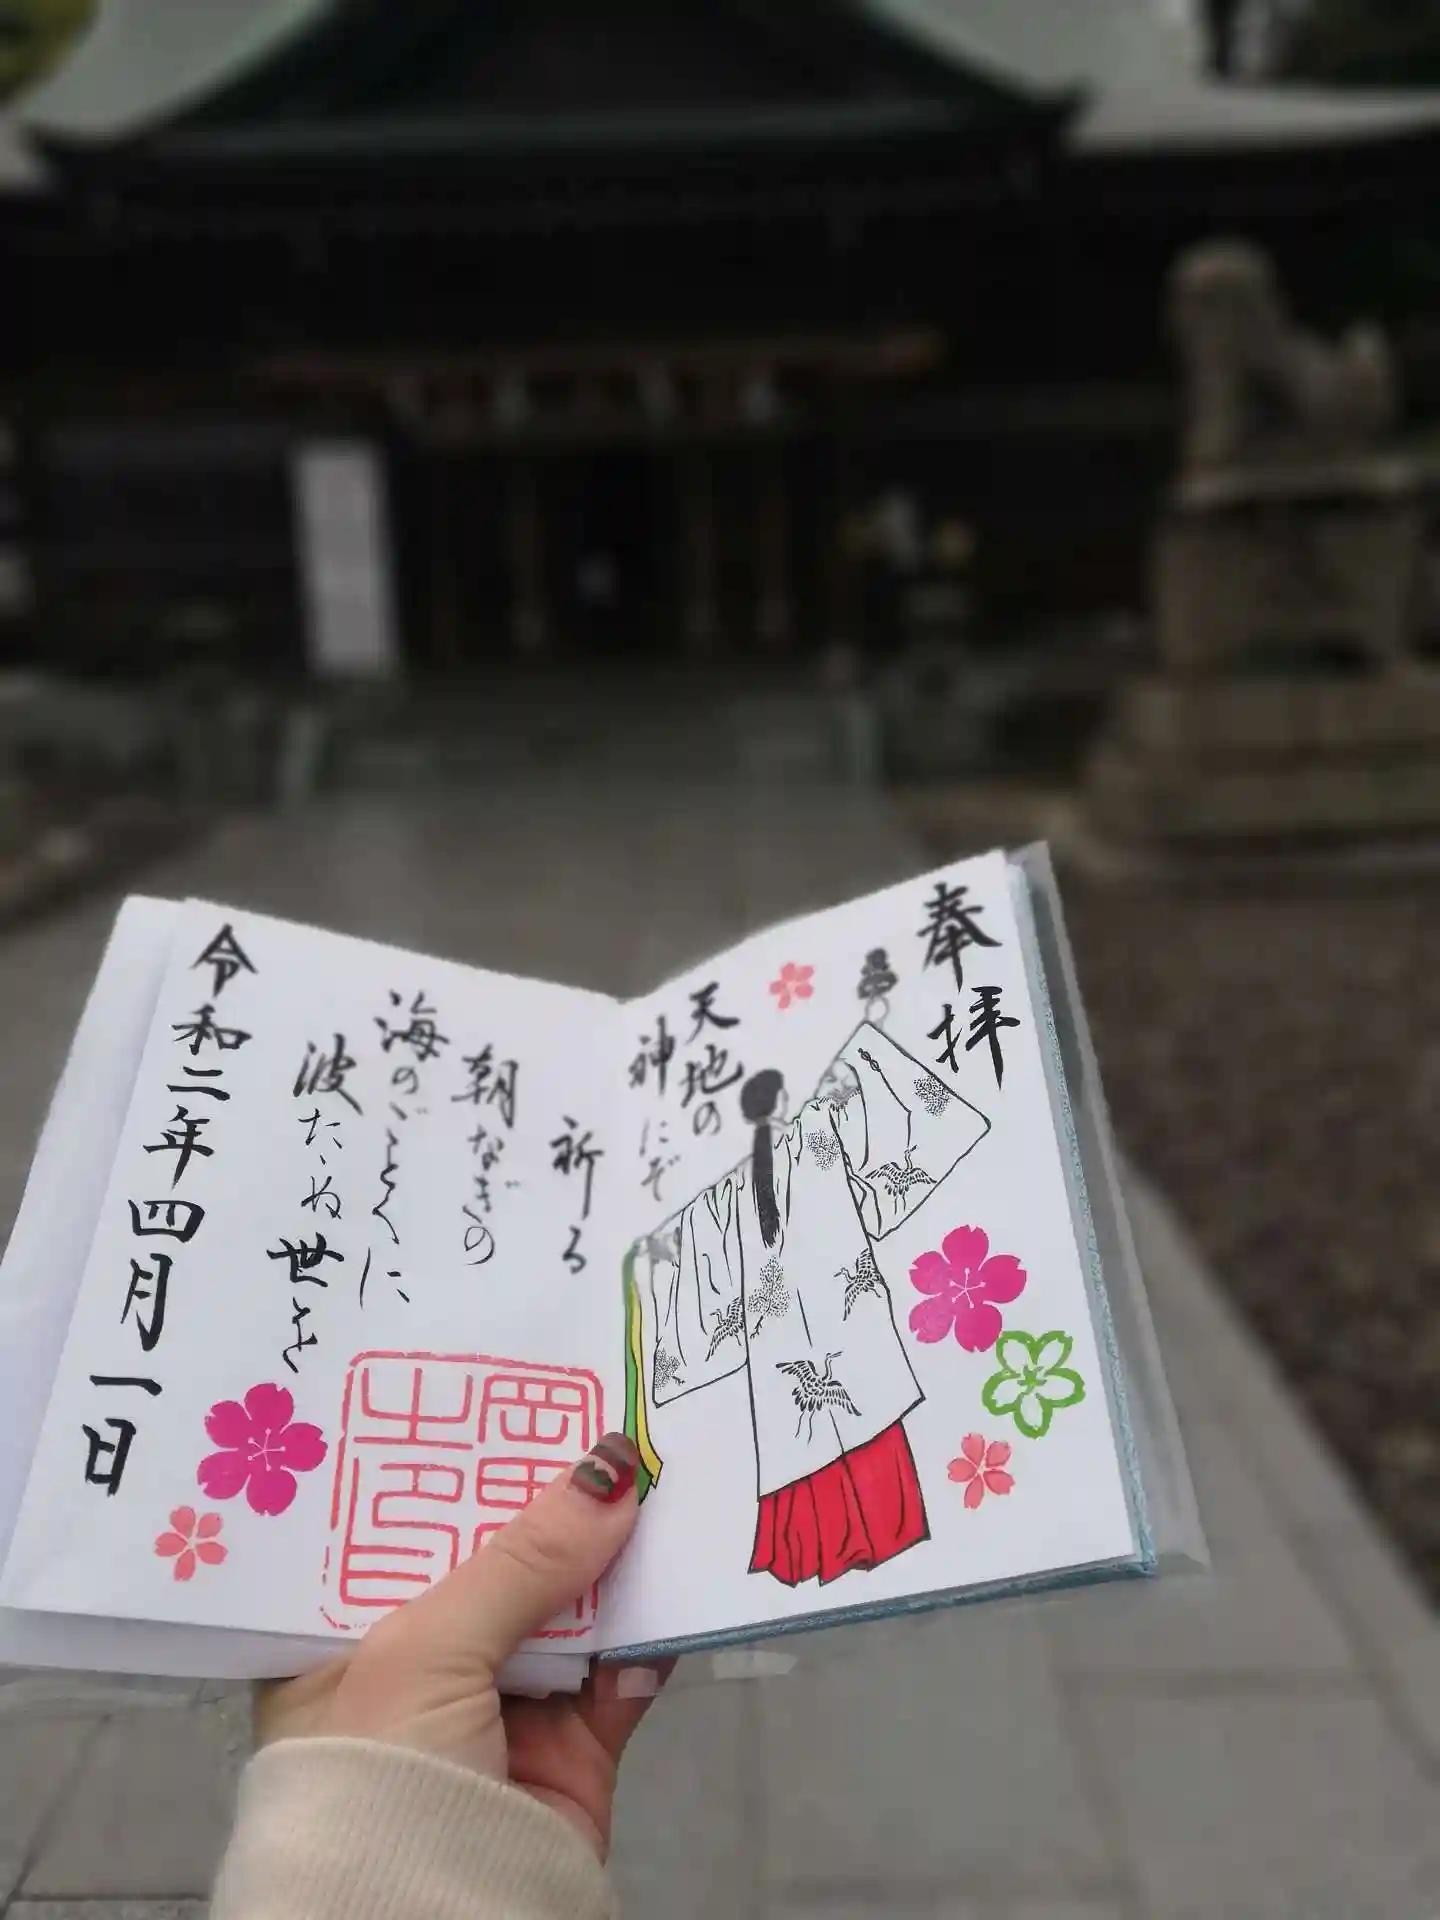 奉拝
天地の
神にぞ
祈る
朝なぎの
海のごとくに
波たゝぬ世を
令和二年四月一日